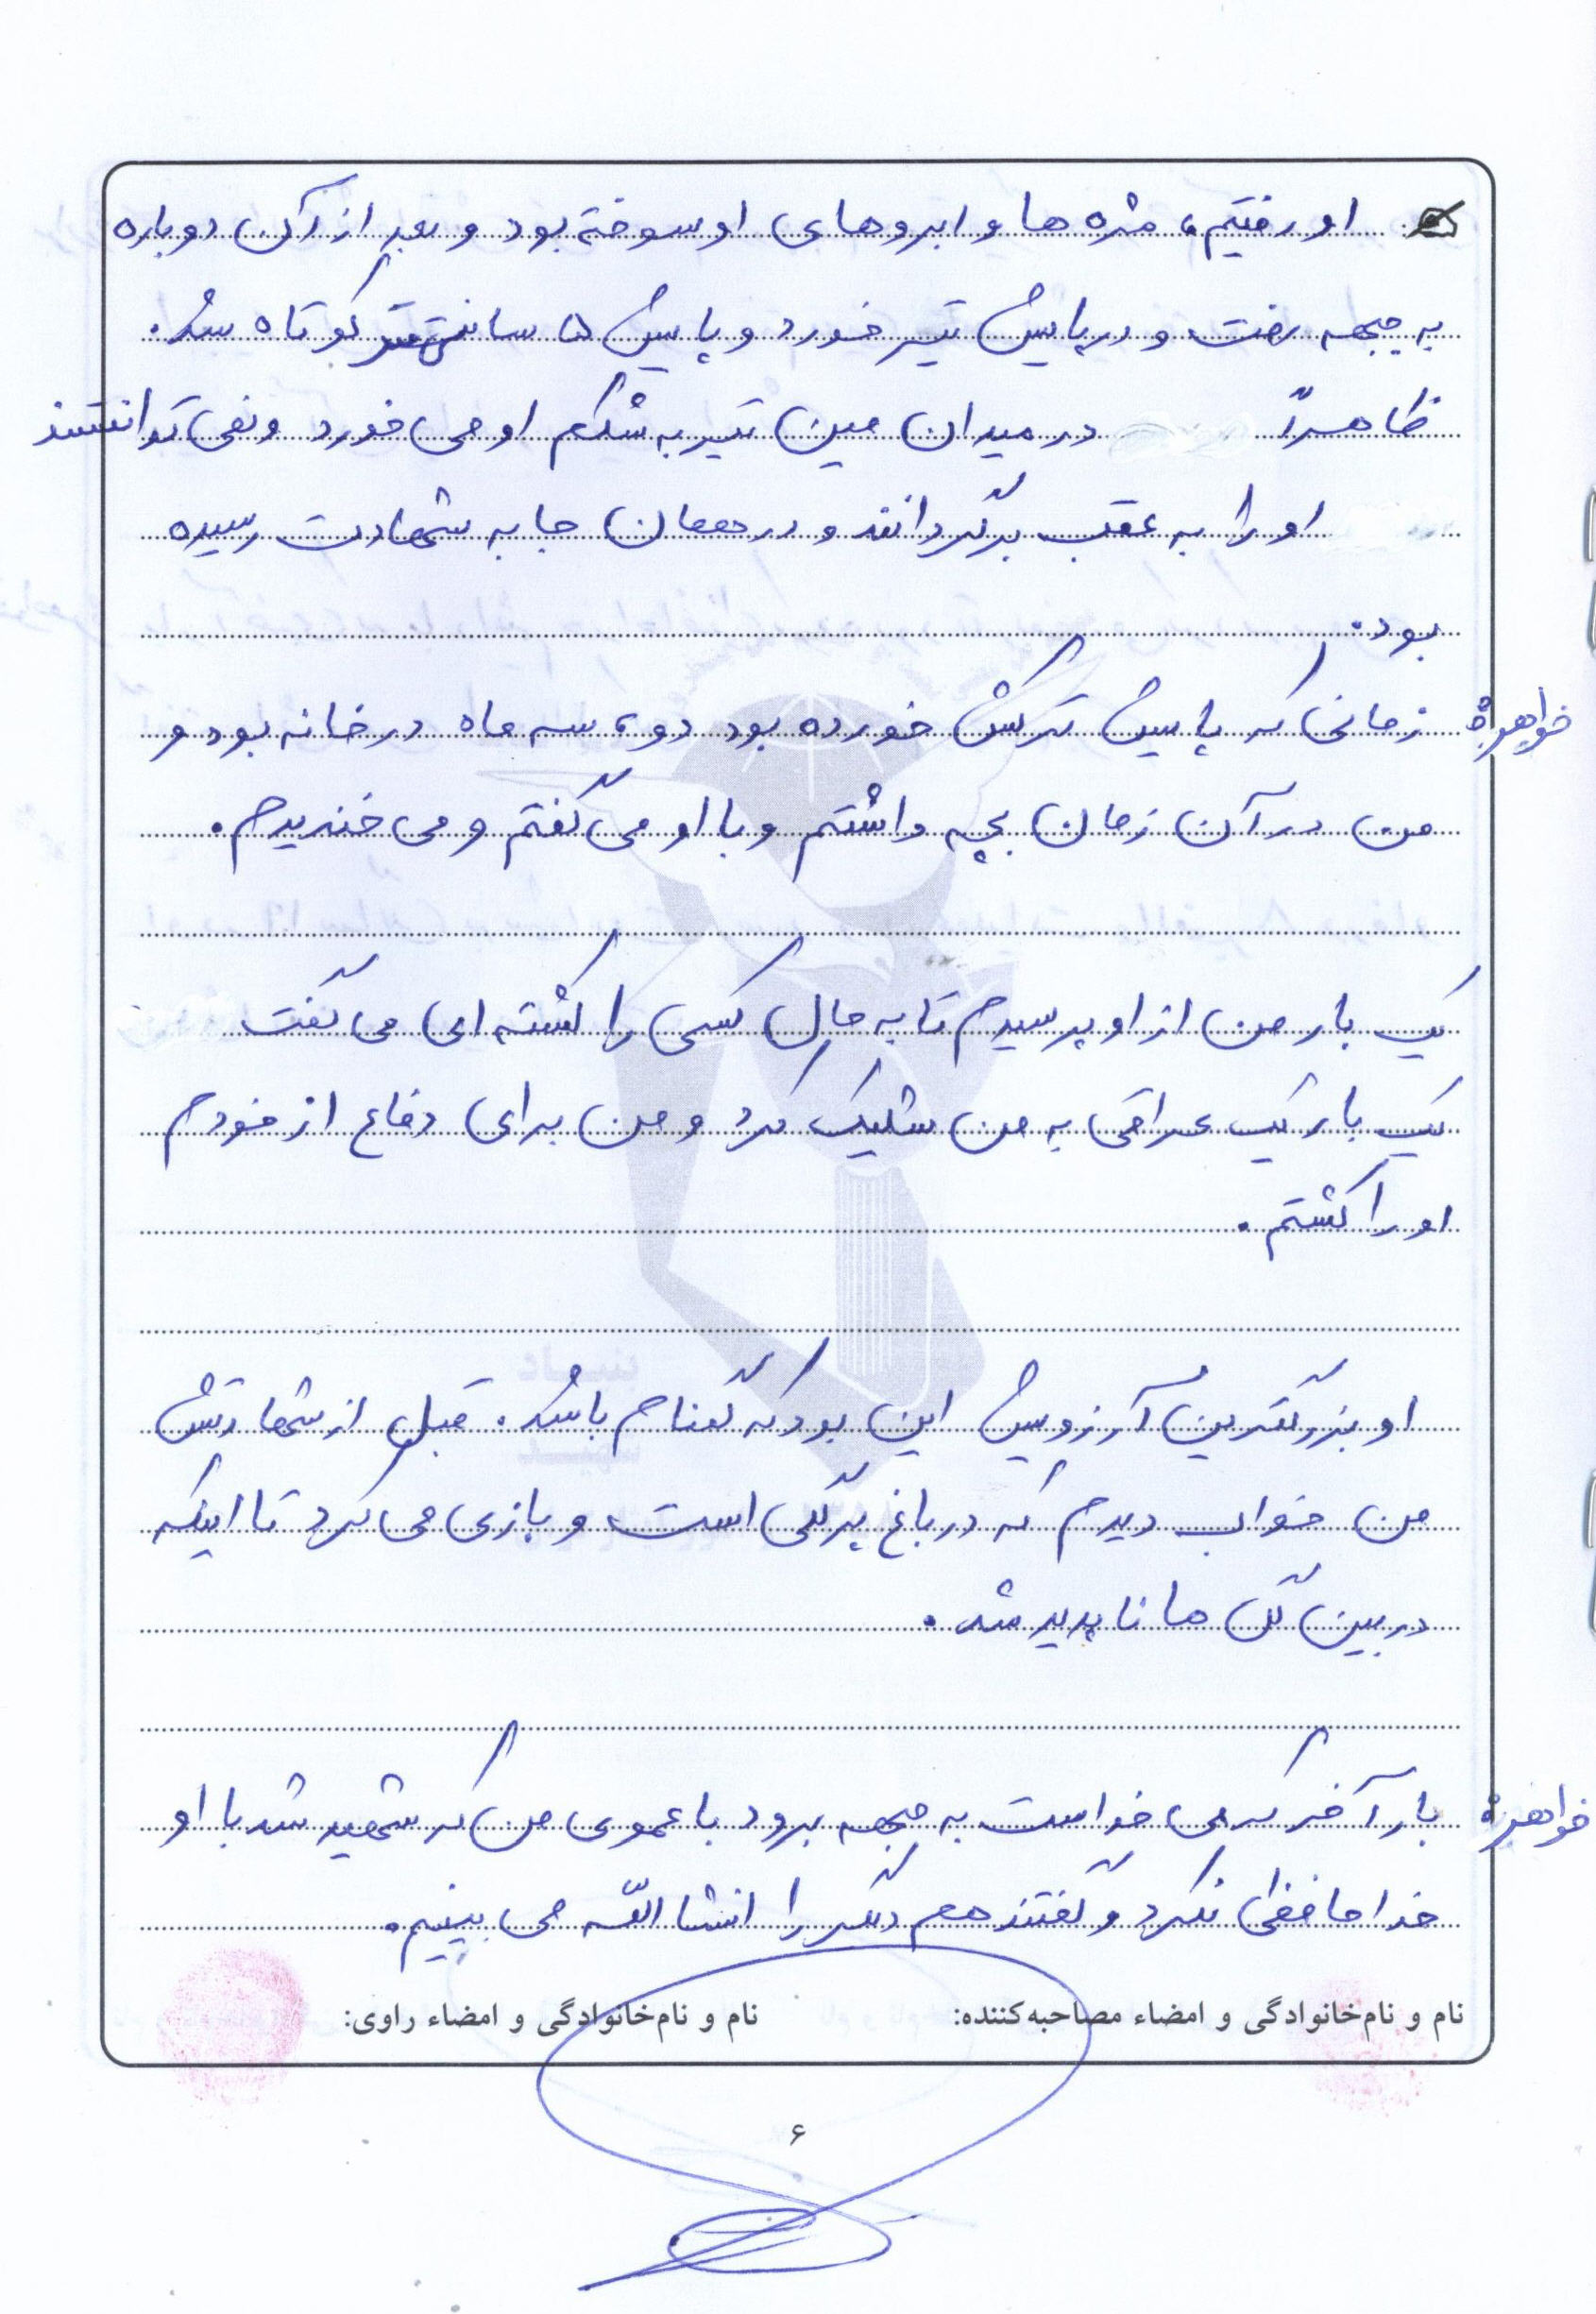 او رفتیم، مژه ها و ابروهای او سوخته بود و بعد از آن دوباره
به جبهه رفت و در پایش تیر خورد و پایش ۵ سانتی متر کوتاه شد.
ظاهراً در میدان مین تیر به شکم او می خورد و نمی توانستند
او را به عقب برگردانند و در همان جا به شهادت رسیده
بود.
خواهر زمانی که پایش ترکش خورده بود دو، سه ماه در خانه بود و
من در آن زمان بچه داشتم و با او می گفتم و می خندیدم.
یک بار من از او پرسیدم تا به حال کسی را کشته ای می گفت
یک بار یک عراقی به من شلیک کرد و من برای دفاع از خودم
او را کشتم.
او بزرگترین آرزویش این بود که گمنام باشد. قبل از شهادتش
من خواب دیدم که در باغ پرگلی است و بازی می کرد تا اینکه
در بین گل ها ناپدید شد.
بار آخر که می خواست به جبهه برود با عموی من که شهید شد با او
خداحافظی نکرد و گفتند هم دیگر را انشا الله می بینیم.
نام و نام‌خانوادگی و امضاء مصاحبه‌کننده: نام و نام‌خانوادگی و امضاء راوی:
۶